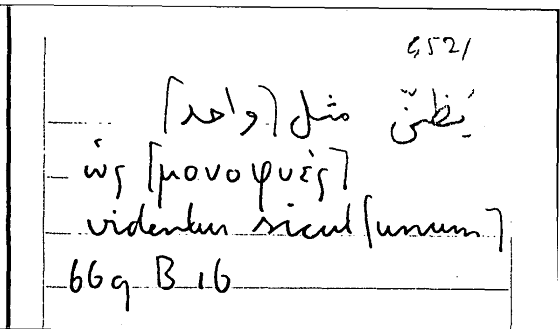 يُظنّ مثل [واحد]
ὡς [μονοφυές]
videntur sicut [unum]
669 B 16